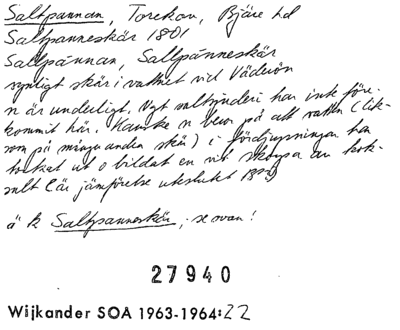 Saltpannan, Torekov, Bjäre hd
Saltpanneskär 1801
Saltpannan, Saltpanneskär
synligt skär i vattnet vid Väderön
n är underligt. Ngt saltsjuderi har inte före-
kommit här. Kanske n beror på att vatten (lik-
som på många andra skär) i fördjupningen har
torkat ut o bildat en vit skorpa av kok-
salt
är jämförelse uteslutet
ä k Saltpanneskär, se ovan!
27940
Wijkander SOA 1963-1964:22